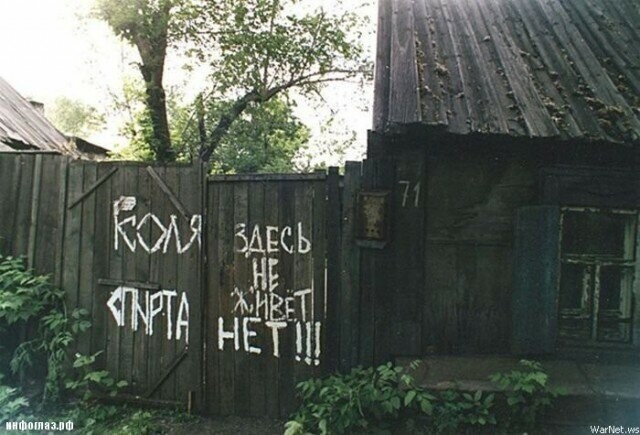 КОЛЯ
ЗДЕСЬ
НЕ
ЖИВЁТ
СПИРТА
НЕТ!!!
71
инфоглаз.рф
WarNet.ws